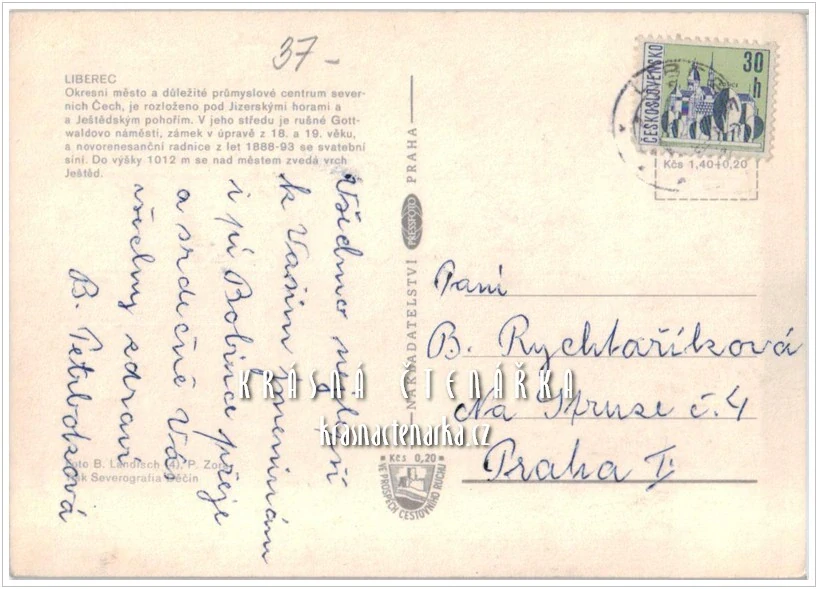 37-
LIBEREC
Okresní město a důležité průmyslové centrum sever-
ních Čech, je rozloženo pod Jizerskými horami a
a Ještědským pohořím. V jeho středu je rušné Gott-
waldovo náměstí, zámek v úpravě z 18. a 19. věku,
a novorenesanční radnice z let 1888-93 se svatební
síní. Do výšky 1012 m se nad městem zvedá vrch
Ještěd.
Všechno nejlepší
k Vašim jmeninám
i pí Bobince přeje
a srdečně Vás
všechny zdraví
B. Petrboková
Foto B. Landisch (4), P. Zora
Tisk Severografia Děčín
NAKLADATELSTVÍ PRESSFOTO PRAHA
Kčs 0,20
VE PROSPĚCH CESTOVNÍHO RUCHU
ČESKOSLOVENSKO
30
h
Kčs 1,40+0,20
Paní
B. Rychtaříková
Na Struze č. 4
Praha II
KRÁSNÁ ČTENÁŘKA
krasnactenarka.cz